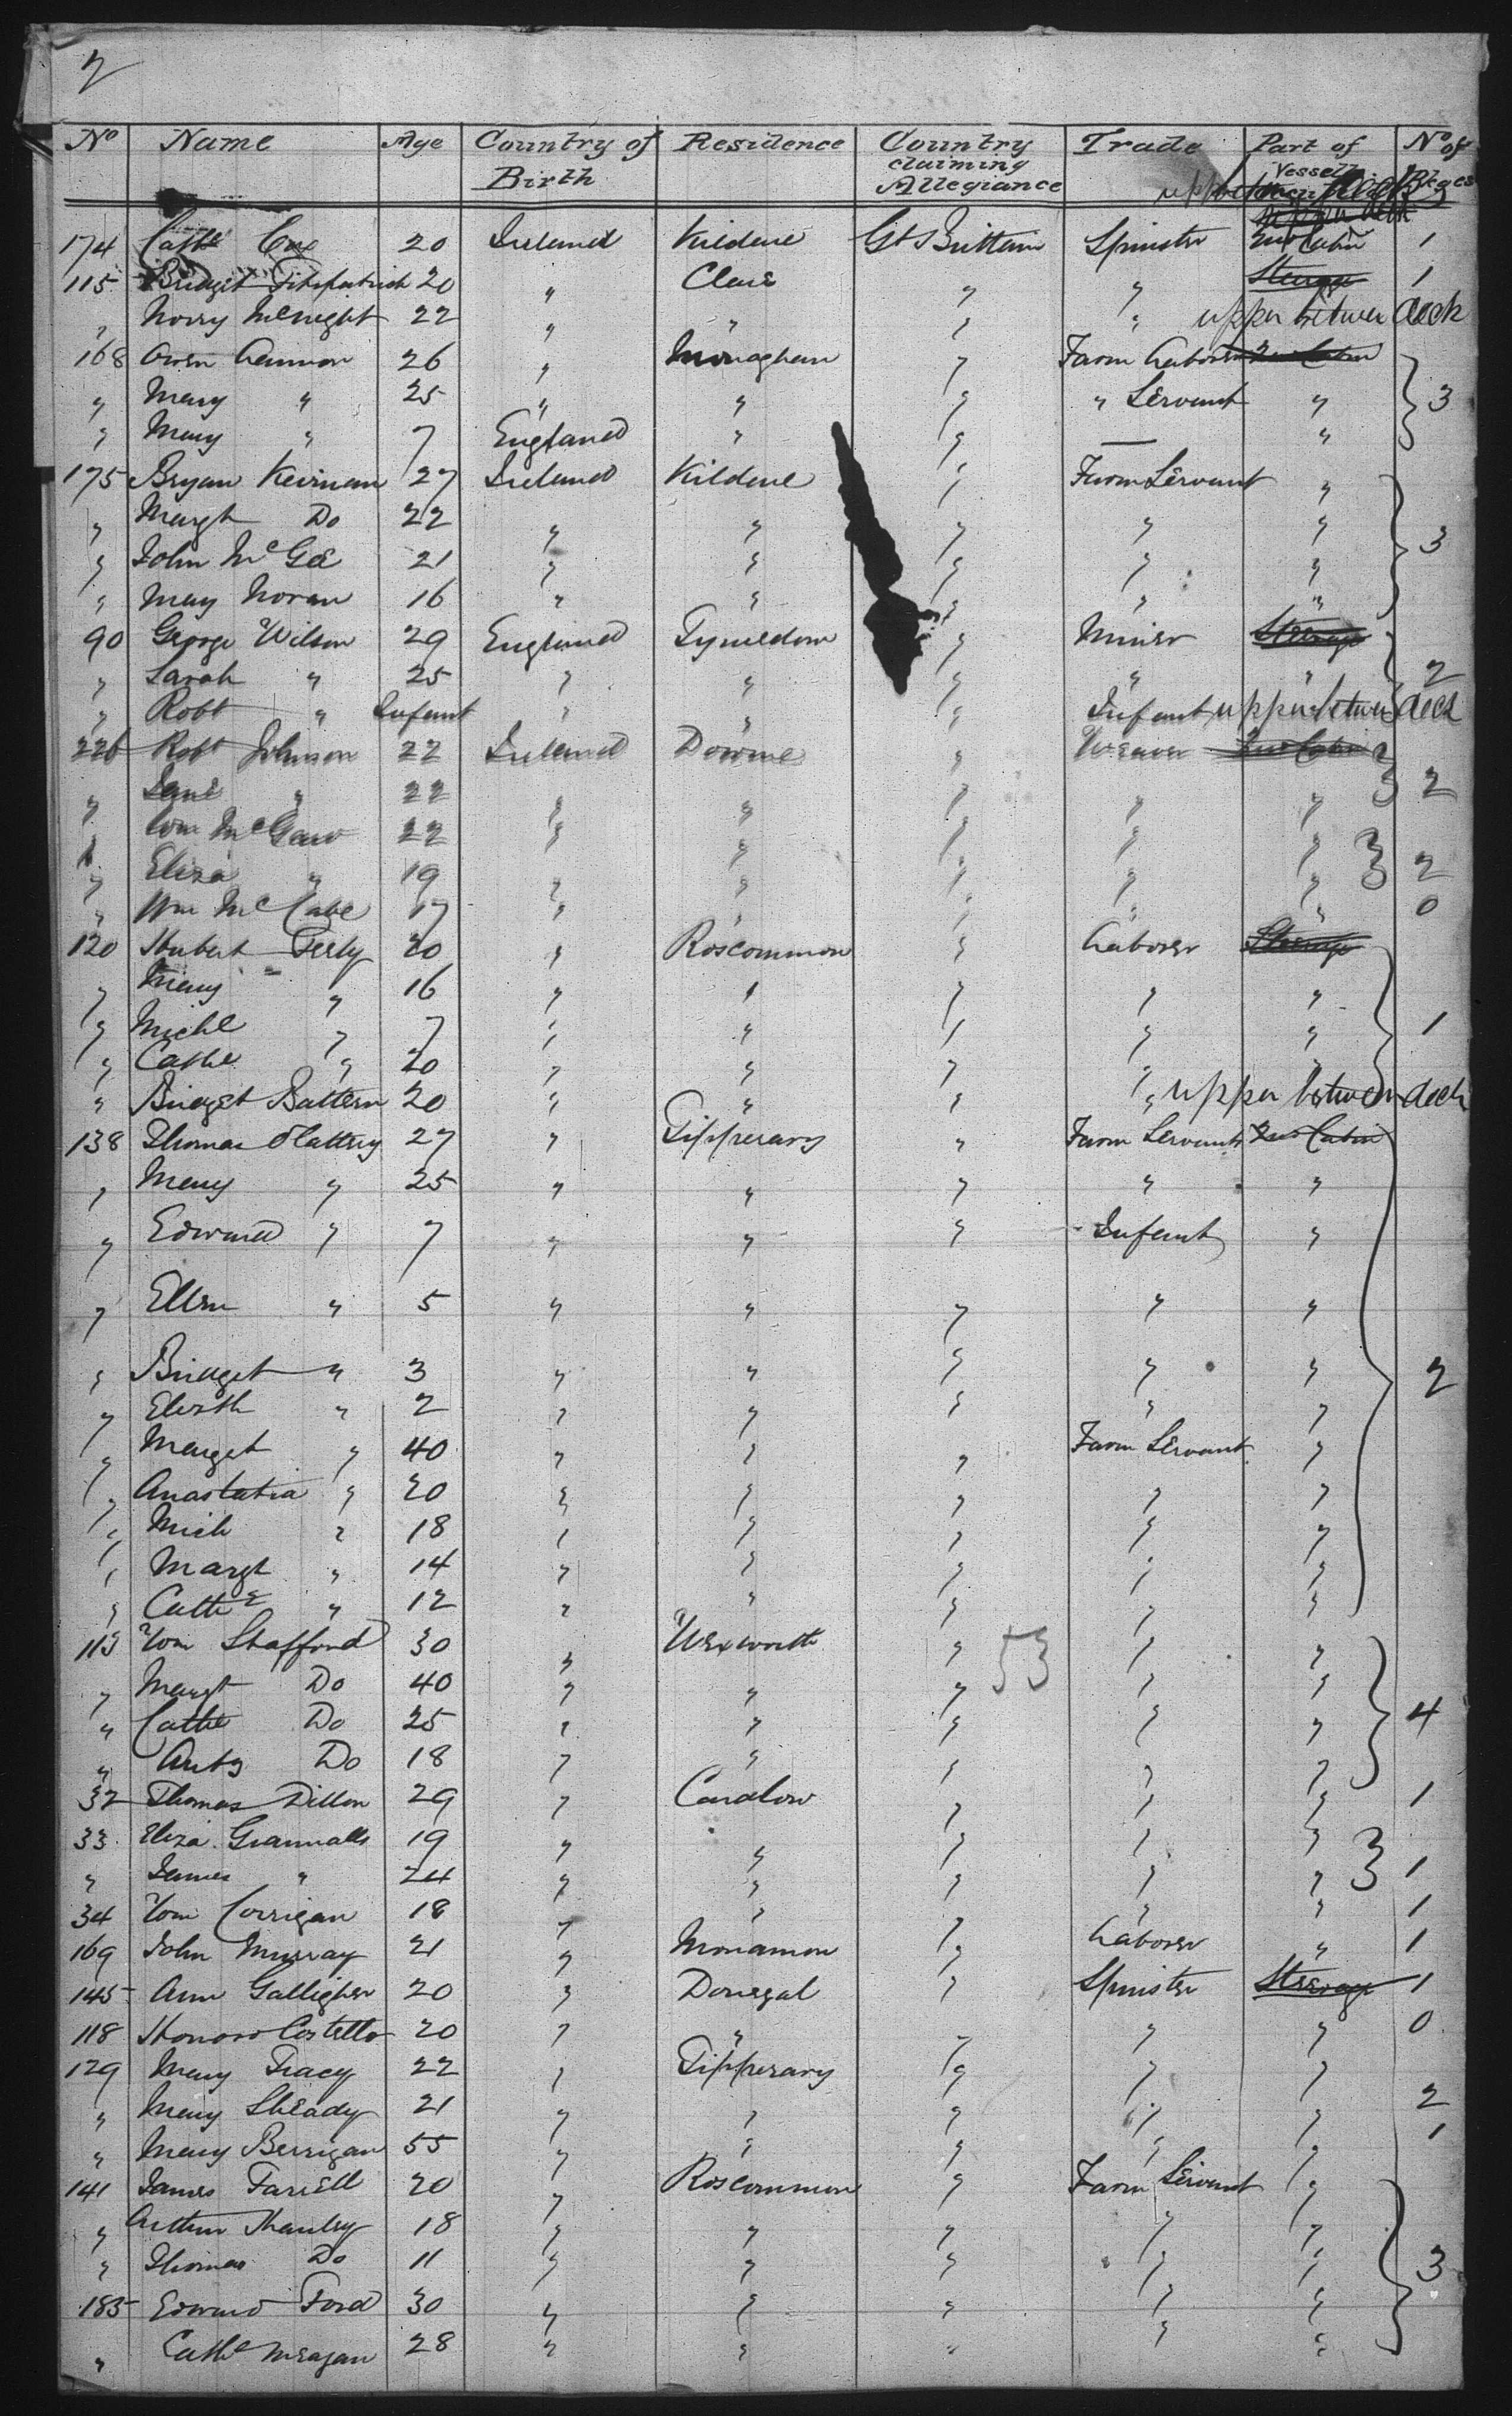 2
No Name Age Country of Birth Residence Country claiming Allegiance Trade Part of Vessell No of Pkges
upper between deck
174 Cathe Cox 20 Ireland Kildare Gt Brittain Spinster 2nd Cabin 1
115 Bridget Fitzpatrick 20 " Clare " " Steerage 1
" Norry McNight 22 " " " " upper between deck
168 Owen Cannon 26 " Monaghan " Farm Laborer 2nd Cabin
" Mary " 25 " " " " Servant " 3
" Mary " 7 England " " — "
175 Bryan Keirnan 27 Ireland Kildare " Farm Servant "
" Margt Do 22 " " " " " 3
" John McGee 21 " " " " "
" Mary Moran 16 " " " " "
90 George Wilson 29 England " Miner Steerage
" Sarah " 25 " " " " " 2
" Robt " Infant " " " Infant upper between deck
226 Robt Johnson 22 Ireland Downe " Weaver 2nd Cabin
" Jane " 22 " " " " " 2
" Wm McGaw 22 " " " " "
" Eliza " 19 " " " " " 2
" Wm McCabe 17 " " " " " 0
120 Hubert Feely 20 " Roscommon " Laborer Steerage
" Mary " 16 " " " " "
" Michl " 7 " " " " " 1
" Cathe " 20 " " " " "
" Bridget Battern 20 " " " " upper between deck
138 Thomas Slattery 27 " Tipperary " Farm Servant 2nd Cabin
" Mary " 25 " " " " "
" Edward " 7 " " " Infant "
" Ellen " 5 " " " " "
" Bridget " 3 " " " " " 2
" Elizth " 2 " " " " "
" Marget " 40 " " " Farm Servant "
" Anastatia " 20 " " " " "
" Mich " 18 " " " " "
" Margt " 14 " " " " "
" Cathe " 12 " " " " "
113 Wm Stafford 30 " Wexworth " " "
53
" Margt Do 40 " " " " "
" Cathe Do 25 " " " " " 4
" Do 18 " " " " "
32 Thomas Dillon 29 " Caralow " " " 1
33 Eliza Grannalls 19 " " " " "
" James " 24 " " " " " 1
34 Wm Corrigan 18 " " " " " 1
169 John Murray 21 " Monamon " Laborer " 1
145 Ann Galligher 20 " Donegal " Spinster Steerage 1
118 Honora Costello 20 " " " " " 0
129 Mary Tracy 22 " Tipperary " " "
" Mary Sheady 21 " " " " " 2
" Mary Berrigan 55 " " " " " 1
141 James Farrell 20 " Roscommon " Farm Servant "
" Arthur Hanley 18 " " " " "
" Thomas Do 11 " " " " " 3
185 Edward Ford 30 " " " " "
" Cathe Meagan 28 " " " " "